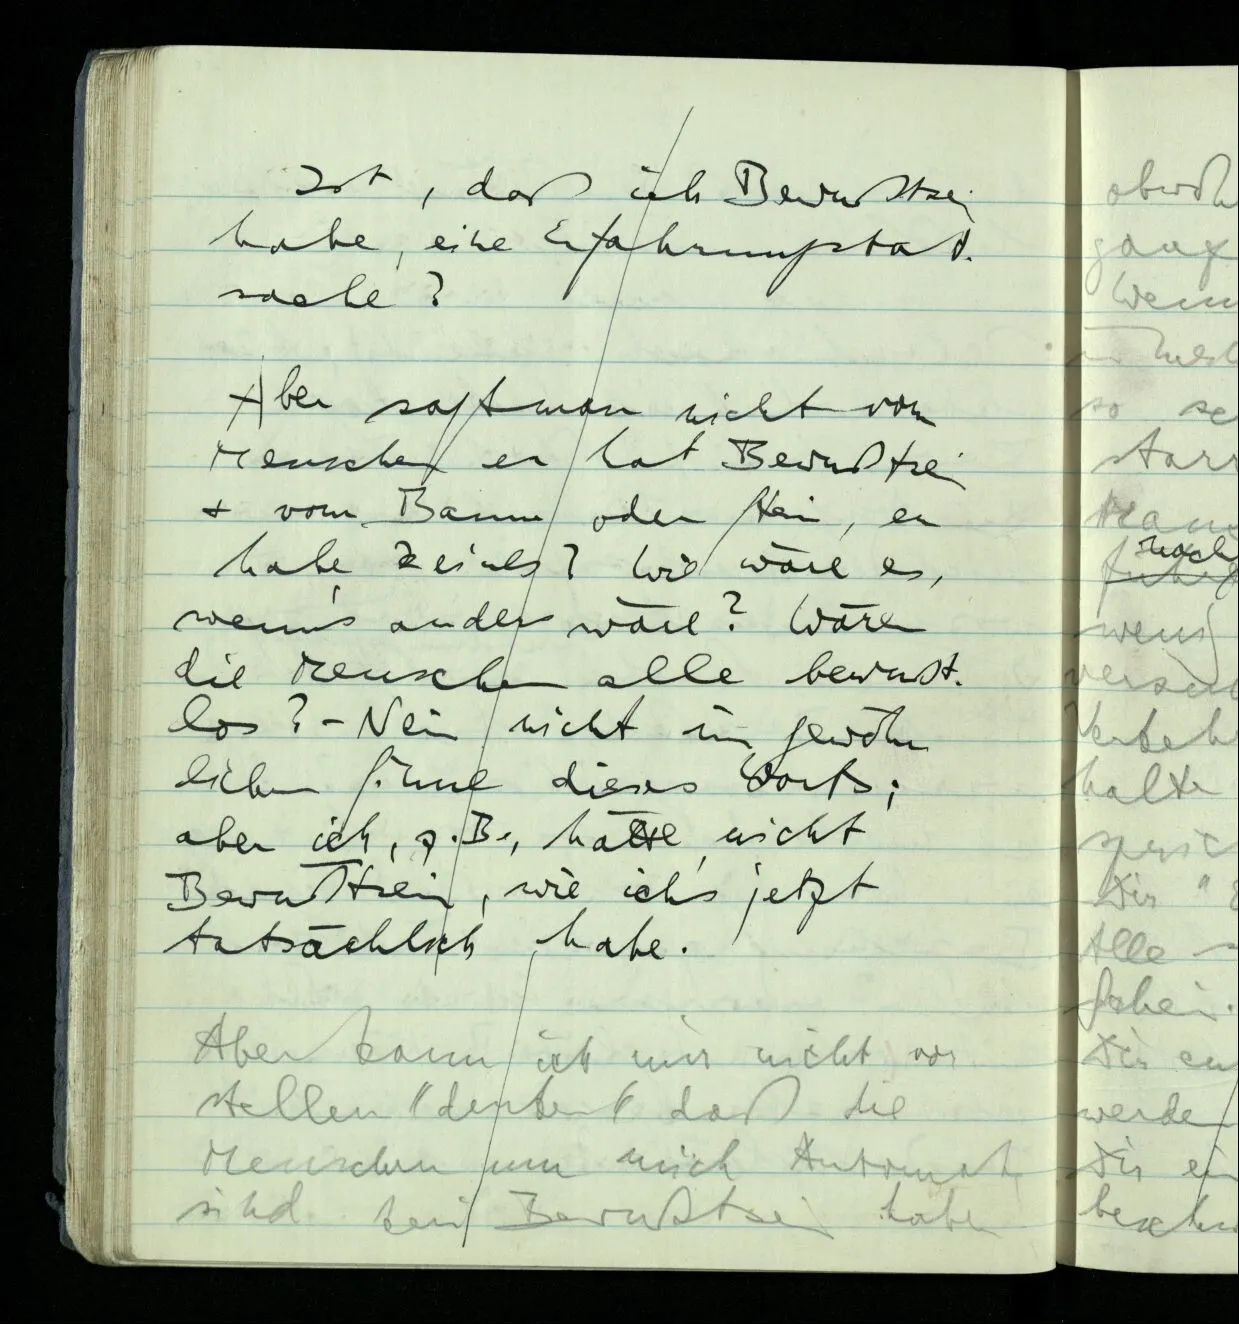 Ist, daß ich Bewußtsein
habe, eine Erfahrungstat-
sache?
Aber sagt man nicht vom
Menschen er hat Bewußtsein
+ vom Baum oder Stein, er
habe keines? Wie wäre es,
wenn's anders wäre? Wären
die Menschen alle bewußt-
los? – Nein nicht im gewöhn
lichen Sinne dieses Worts;
aber ich, z.B., hätte nicht
Bewußtsein, wie ich's jetzt
tatsächlich habe.
Aber kann ich mir nicht vor
stellen (denken) daß die
Menschen um mich Automaten
sind kein Bewußtsein haben
noch
wenig
halte
Alle
werden